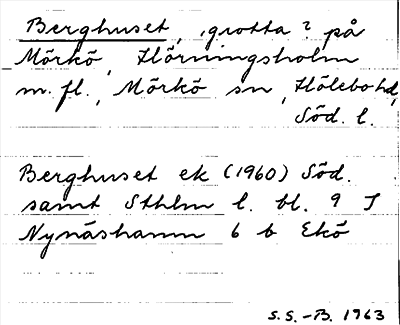 Berghuset, grotta? på
Mörkö, Hörningsholm
m. fl., Mörkö sn, Hölebohd,
Söd. l.
Berghuset ek (1960) Söd.
samt Sthlm l. bl. 9 I
Nynäshamn 6 b Ekö
S.S.-B. 1963